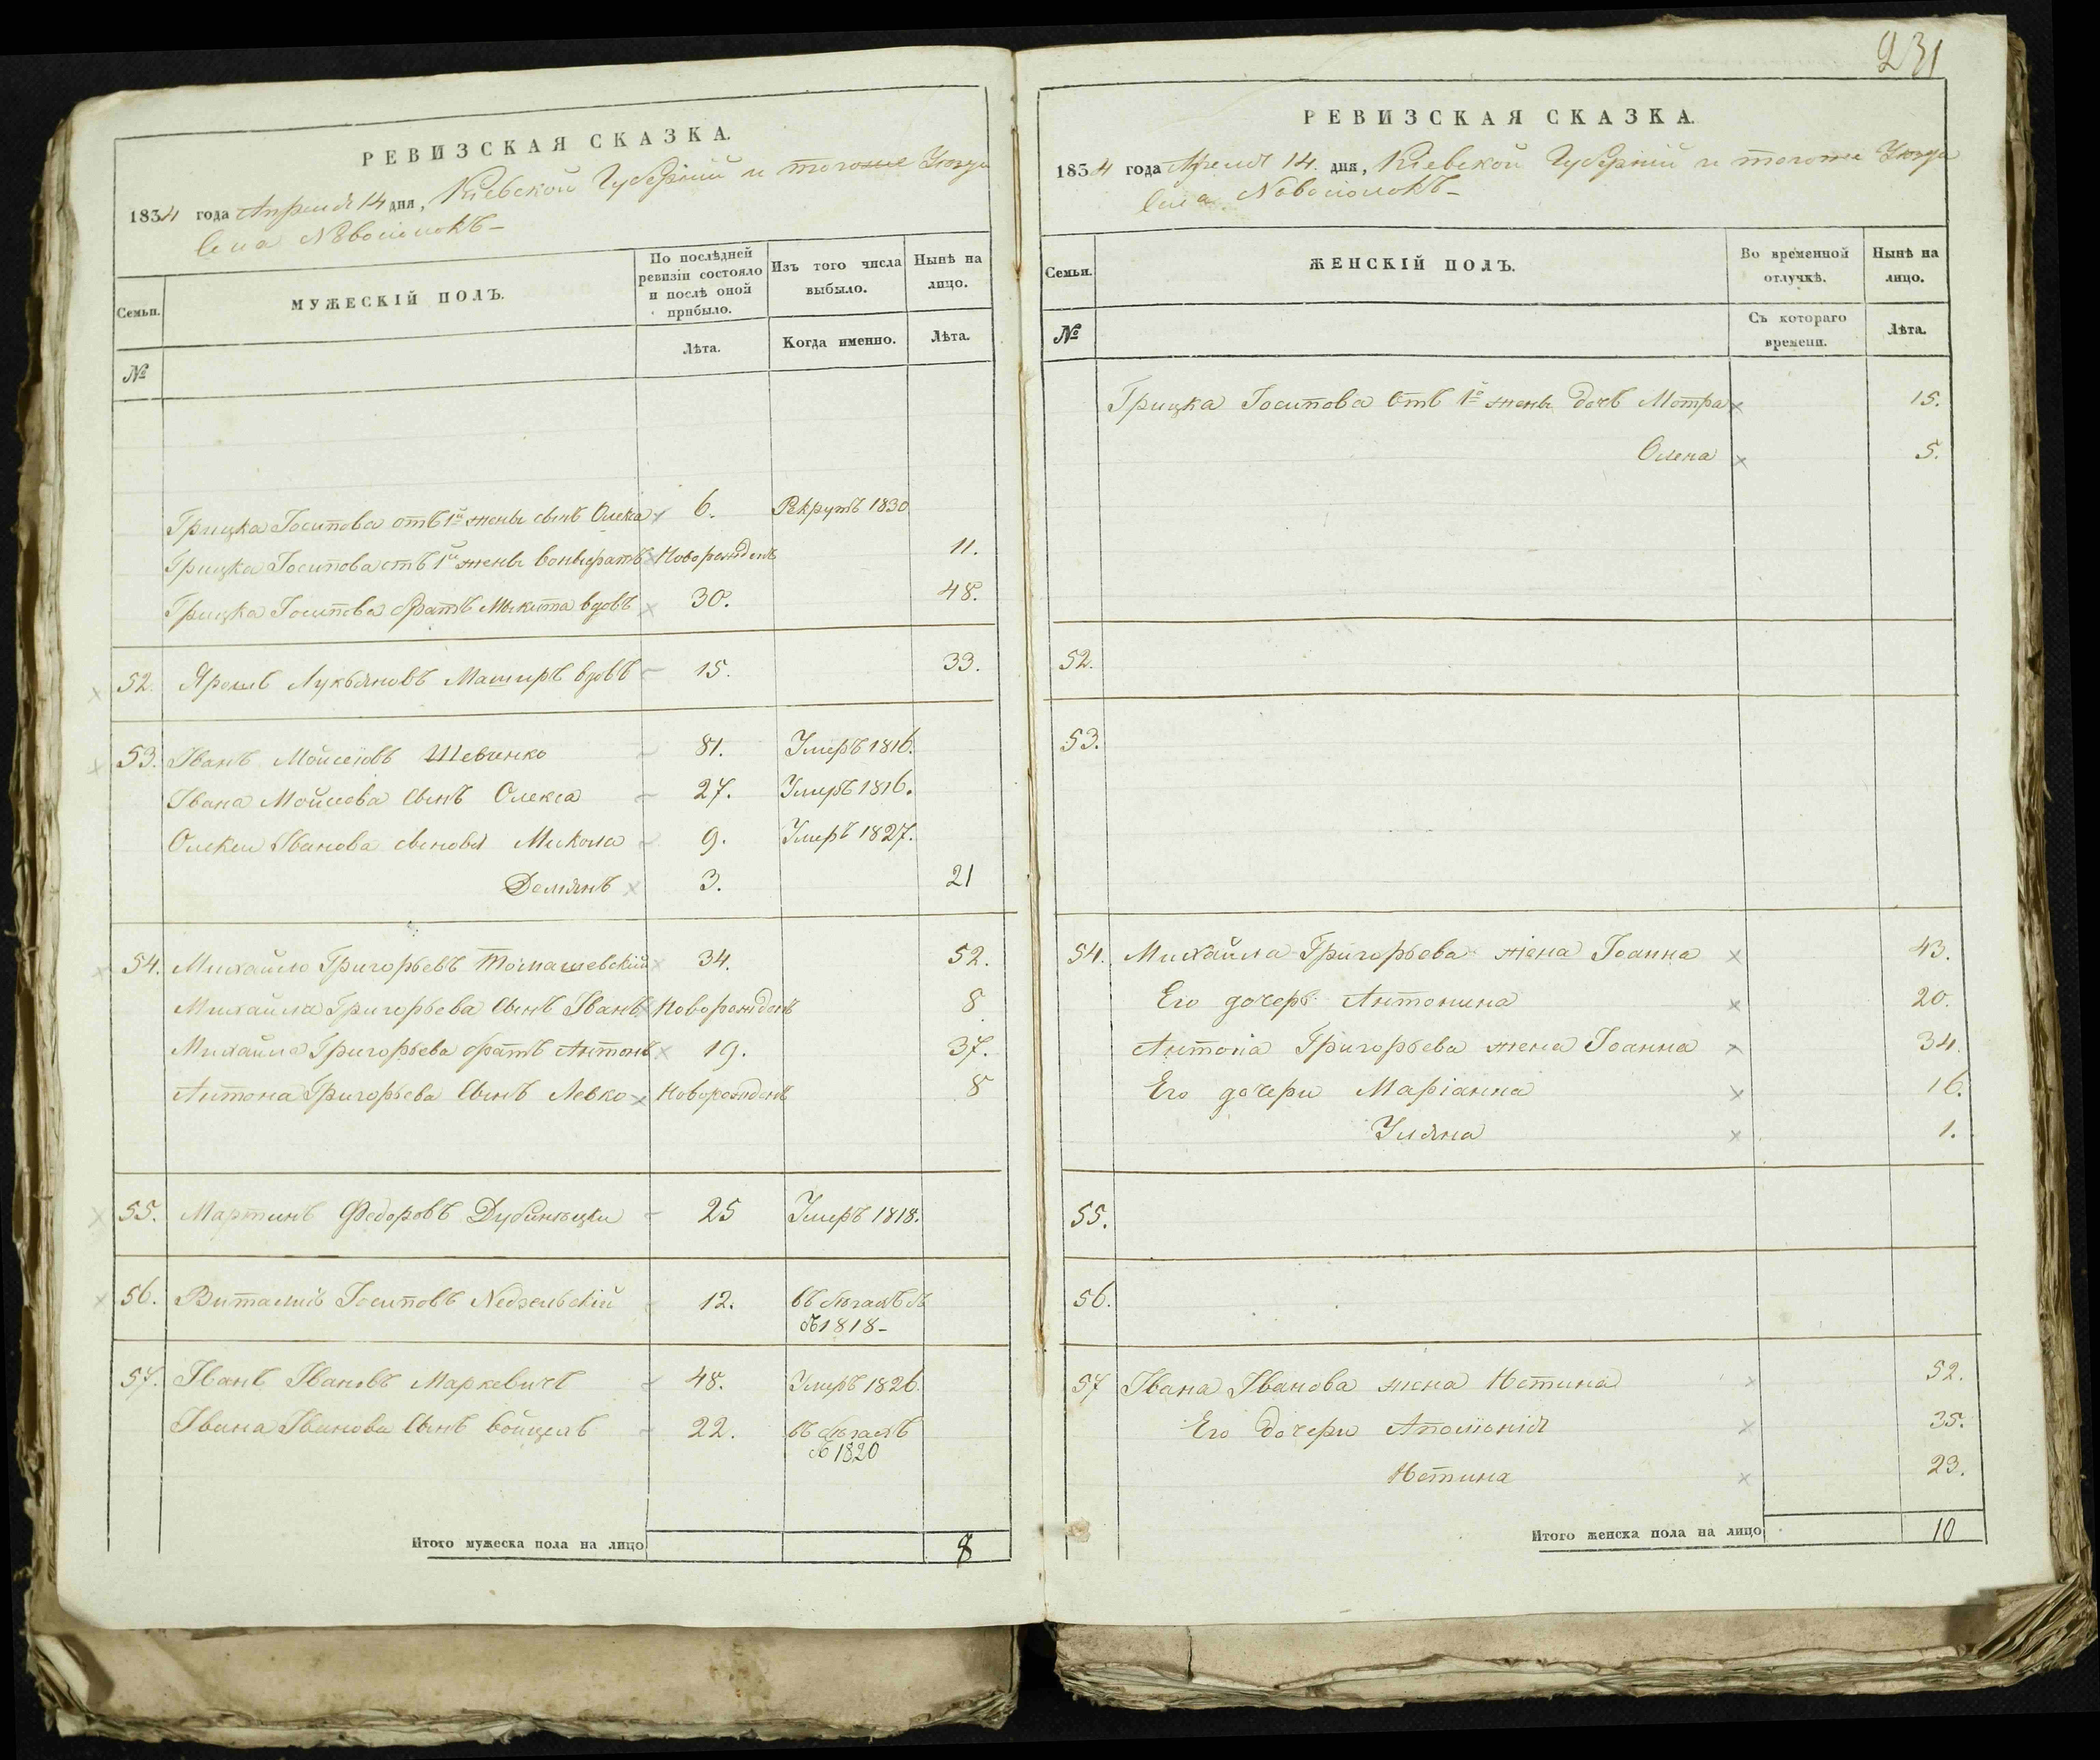 РЕВИЗСКАЯ СКАЗКА.
1834 года Апреля 14 дня, Кіевской Губерніи и тогоже Уезда
Села Новоселокъ
Семьи.
МУЖЕСКІЙ ПОЛЪ.
По послѣдней ревизіи состояло и послѣ оной прибыло.
Изъ того числа выбыло.
Нынѣ на лицо.
№
Лѣта.
Когда именно.
Лѣта.
Грицка Іосипова отъ 1й жены сынъ Олекса 6. Рекрутъ 1830
Грицка Іосипова отъ 1й жены Новорожденъ 11.
Грицка Іосипова братъ Микита вдовъ 30. 48.
52. Яремъ Лукьяновъ Маширъ вдовъ 15. 33.
53. Іванъ Мойсеіовъ Шевченко 81. Умеръ 1816.
Івана Мойсеова сынъ Олекса 27. Умеръ 1816.
Олексы Иванова сыновья Микола 9. Умеръ 1827.
Демянъ 3. 21
54. Михайло Григорьевъ Томашевскій 34. 52.
Михайла Григорьева сынъ Іванъ Новорожденъ 8
Михайла Григорьева братъ Антонъ 19. 37.
Антона Григорьева сынъ Левко Новорожденъ 8
55. Мартинъ Федоровъ 25 Умеръ 1818.
56. Виталій Іосиповъ Nедзельскій 12. въ бегахъ
съ 1818-
57. Іванъ Івановъ Маркевичъ 48. Умеръ 1826.
Івана Іванова сынъ Войцехъ 22. въ бегахъ
съ 1820
Итого мужеска пола на лицо 8
231
РЕВИЗСКАЯ СКАЗКА.
1834 года Апреля 14. дня, Кіевской Губерніи и тогоже Уезда
Села Новоселокъ
Семьи.
ЖЕНСКІЙ ПОЛЪ.
Во временной отлучкѣ.
Нынѣ на лицо.
№
Съ котораго времени.
Лѣта.
Грицка Іосипова отъ 1й жены дочь Мотра 15.
Олена 5.
52.
53.
54. Михайла Григорьева жена Іоанна 43.
Его дочерь Антонина 20.
Антона Григорьева жена Іоанна 34.
Его дочери Маріанна 16.
Уляна 1.
55.
56.
57 Івана Иванова жена Юстина 52.
Его дочери Аполіонія 35.
Юстина 23.
Итого женска пола на лицо 10